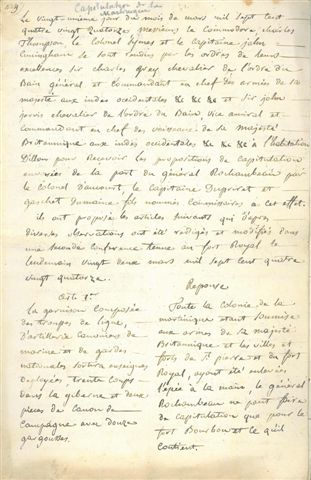 Capitulation de la
Martinique
Le vingt unieme jour du mois de mars mil sept cent
quatre vingt quatorze messieurs le Commodore charles
Thompson, le Colonel Symes et le capitaine john
Cuningham se sont rendus par les ordres de leurs
excellences sir charles grey chevalier de l'ordre du
Bain général et Commandant en chef des armées de sa
majesté aux indes occidentales &c &c &c et sir john
jervis chevalier de l'ordre du Bain, vice amiral et
Commandant en chef des vaisseaux de sa Majesté
Britannique aux indes occidentales &c &c &c à l'habitation
Dillon pour Recevoir les propositions de capitulation
envoiées de la part du général Rochambeau par
le Colonel d'aucourt, le capitaine Duprirêt et
gaschet Dumaine fils nommés Commissaires à cet effet.
ils ont proposé les articles suivants qui d'après
diverses observations ont été rédigés et modifiés dans
une seconde Conference tenue au fort Royal le
lendemain vingt deux mars mil sept cent quatre
vingt quatorze.
Arti. 1er
La garnison Composée
des troupes de ligne,
d'artillerie Canoniers de
marine et de gardes
nationales sortira enseignes
deployées, trente Coups
dans la giberne et deux
pieces de Canon de
Campagne avec douze
gargousses.
Reponse
Toute la Colonie de la
martinique étant soumise
aux armes de sa majesté
Britannique et les villes et
forts de St pierre et du fort
Royal, ayant été enlevées
l'épée à la main, le général
Rochambeau ne peut faire
de capitulation que pour le
fort Bourbon et ce qu'il
Contient.